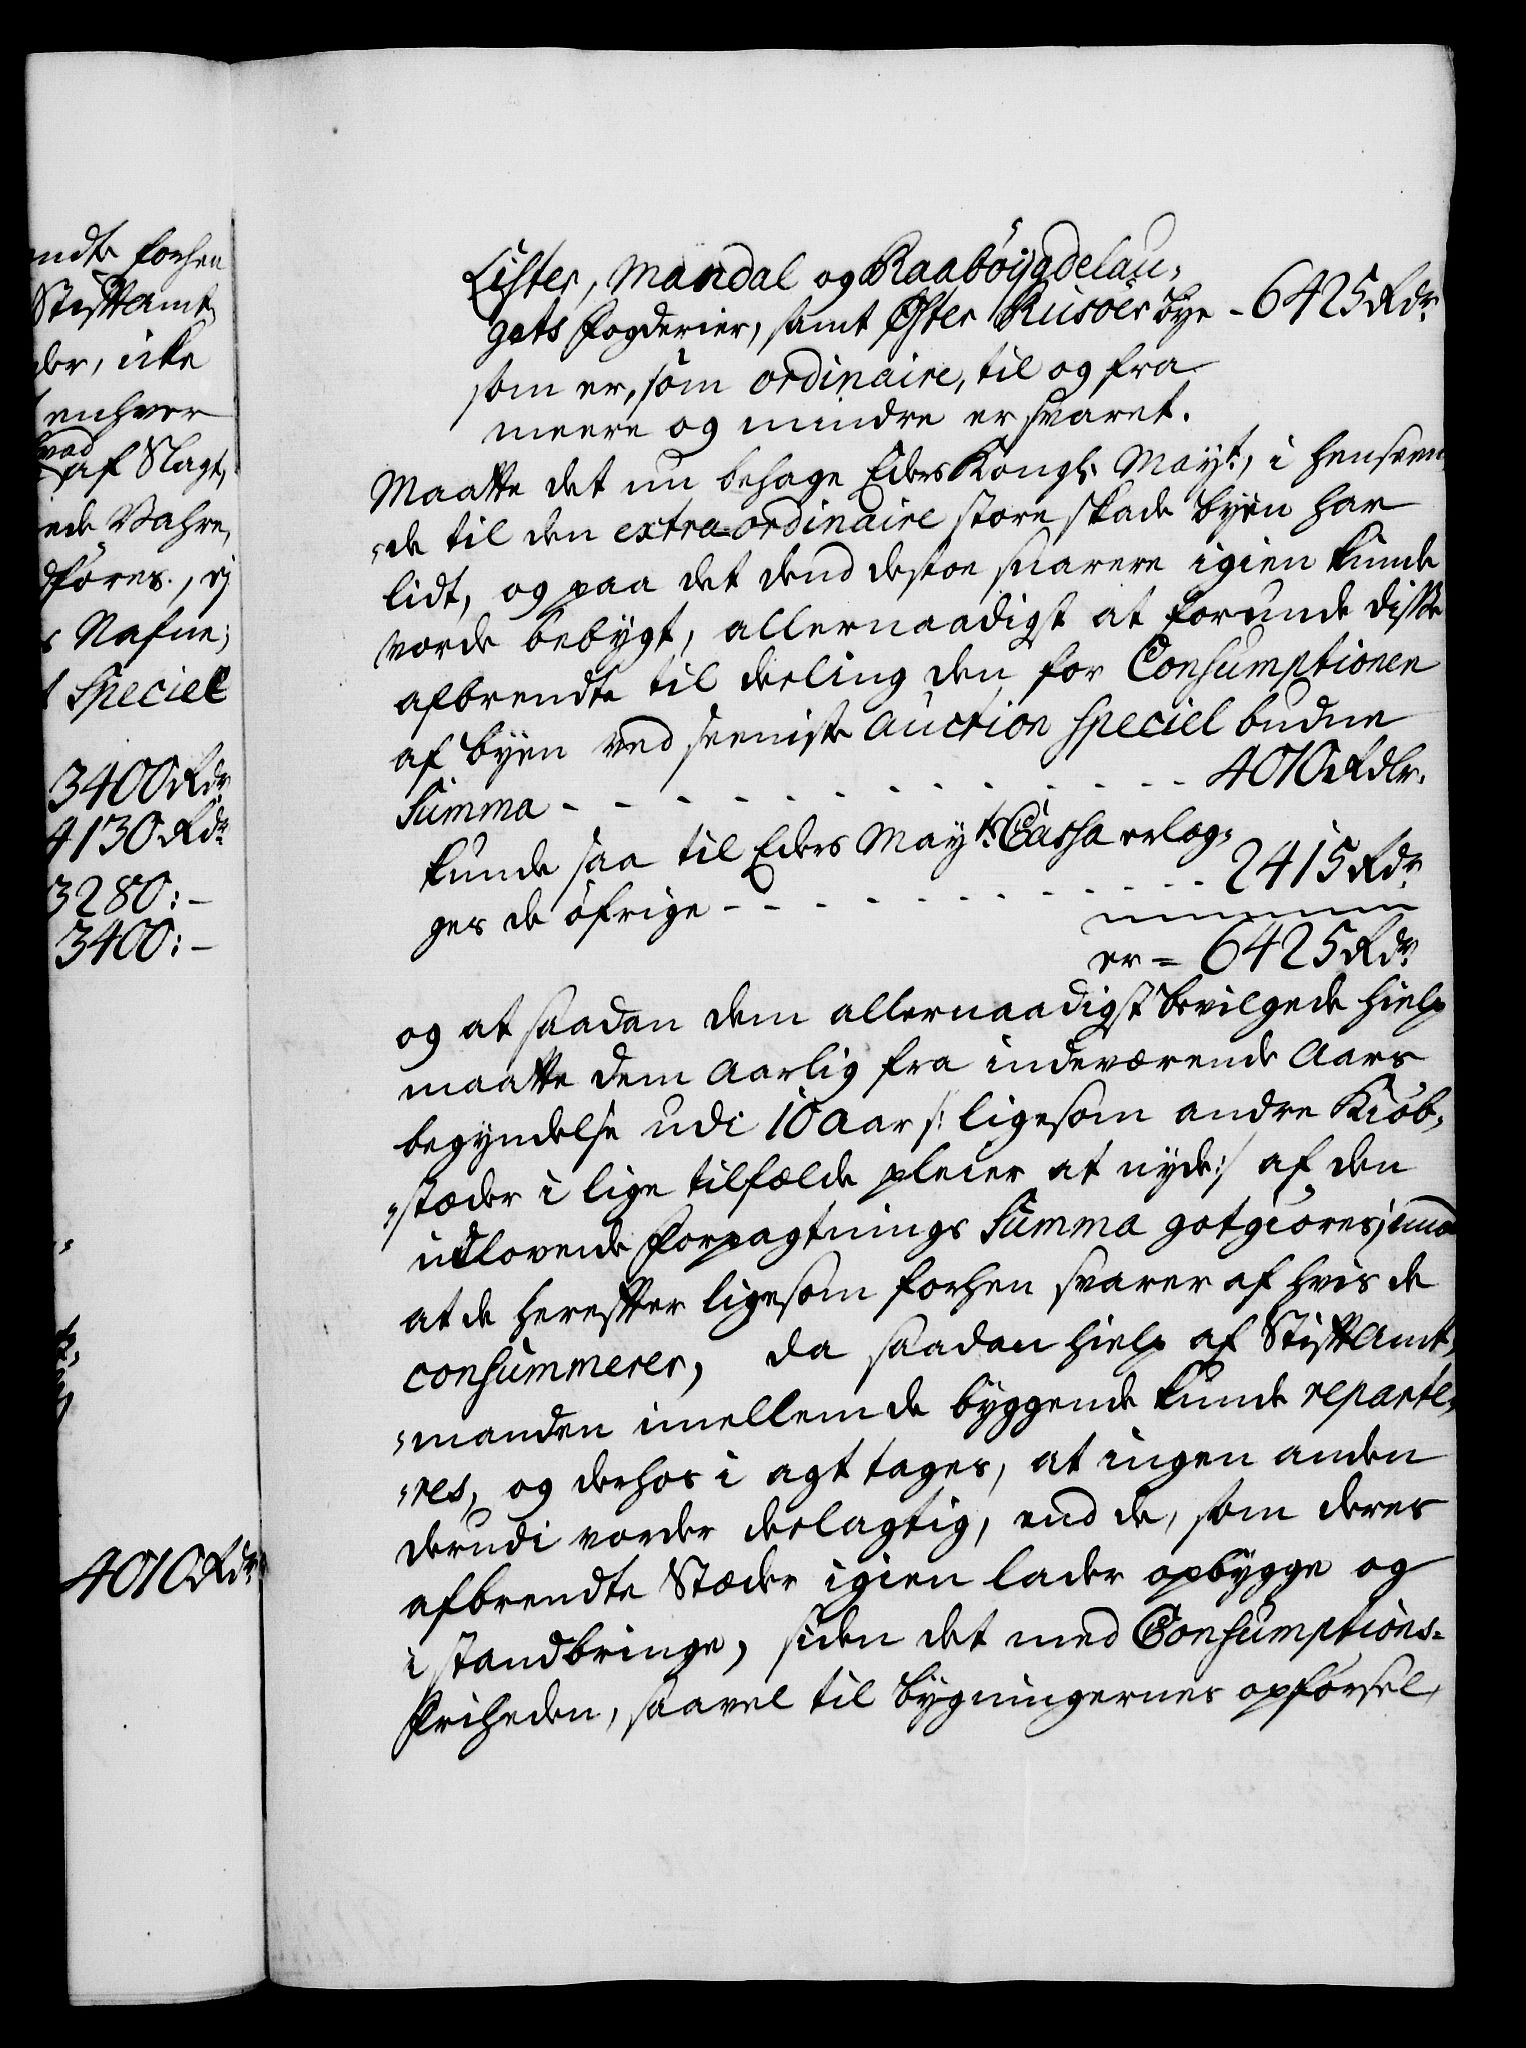 ndte forhen
Stiftamt,
der, icke
enhver
hvad
af Slagt,
ede Vahre,
dføres., ej
s Nafne;
Speciel
3400 Rdr
4130 Rdr
3280:-
3400:-
4010 Rdr
Lister, Mandal og Raabøÿgdelau,
gets fogderier, samt Øster Riisöers bye - 6425 Rdr.
som er, som ordinaire, til og fra
meere og mindre er svaret.
Maatte det nu behage Eders Kongl. Mayt., i henseen,
,de til den extraordinaire store skade byen har
lidt, og paa det dend destoe snarere igien kunde
vorde bebÿgt, allernaadigst at forunde disse
afbrendte til deeling den for Consumptionen
af byen ved seeniste Auction speciel budne
Summa - - - - - - - - - - - - 4010 Rdlr.
kunde saa til Eders Mayts. Cassa erlæg,
ges de öfrige - - - - - - - - - 2415 Rdr
er = 6425 Rdr.
og at saadan dem allernaadigst bevilgede hielp
maatte dem Aarlig fra indeværende Aars
begyndelse udi 10 Aar /: ligesom andre Kiöb,
,stæder i lige tilfælde pleier at nyde :/ af den
udlovende forpagtnings Summa gotgiöres, imod
at de herefter ligesom forhen svarer af hvis de
consummerer, da saadan hielp af Stiftamt,
,manden imellem de byggende kunde reparte,
,res, og derhos i agt tages, at ingen anden
derudi vorder deelagtig, end de, som deres
afbrendte Stæder igien lader opbÿgge og
i standbringe, siden det med Consumptions-
friheden, saavel til bÿgningernes opförsel,